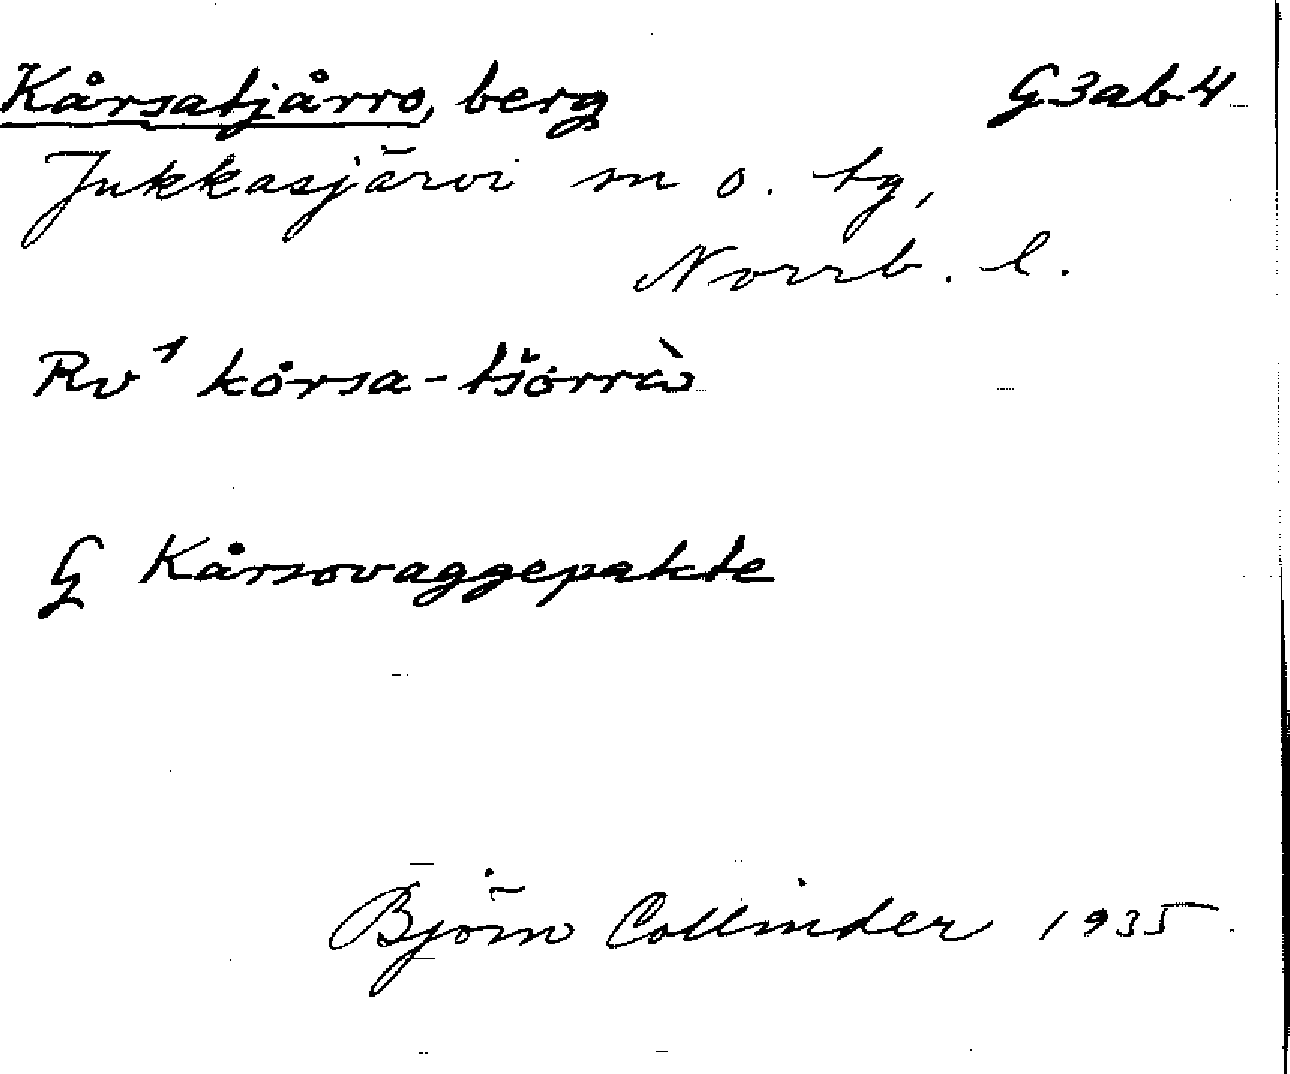 Kårsatjårro, berg G3ab4
Jukkasjärvi sn o. tg,
Norrb. l.
Rv¹ kårsa-tšårrὼ
G Kårsovaggepakte
Björn Collinder 1935